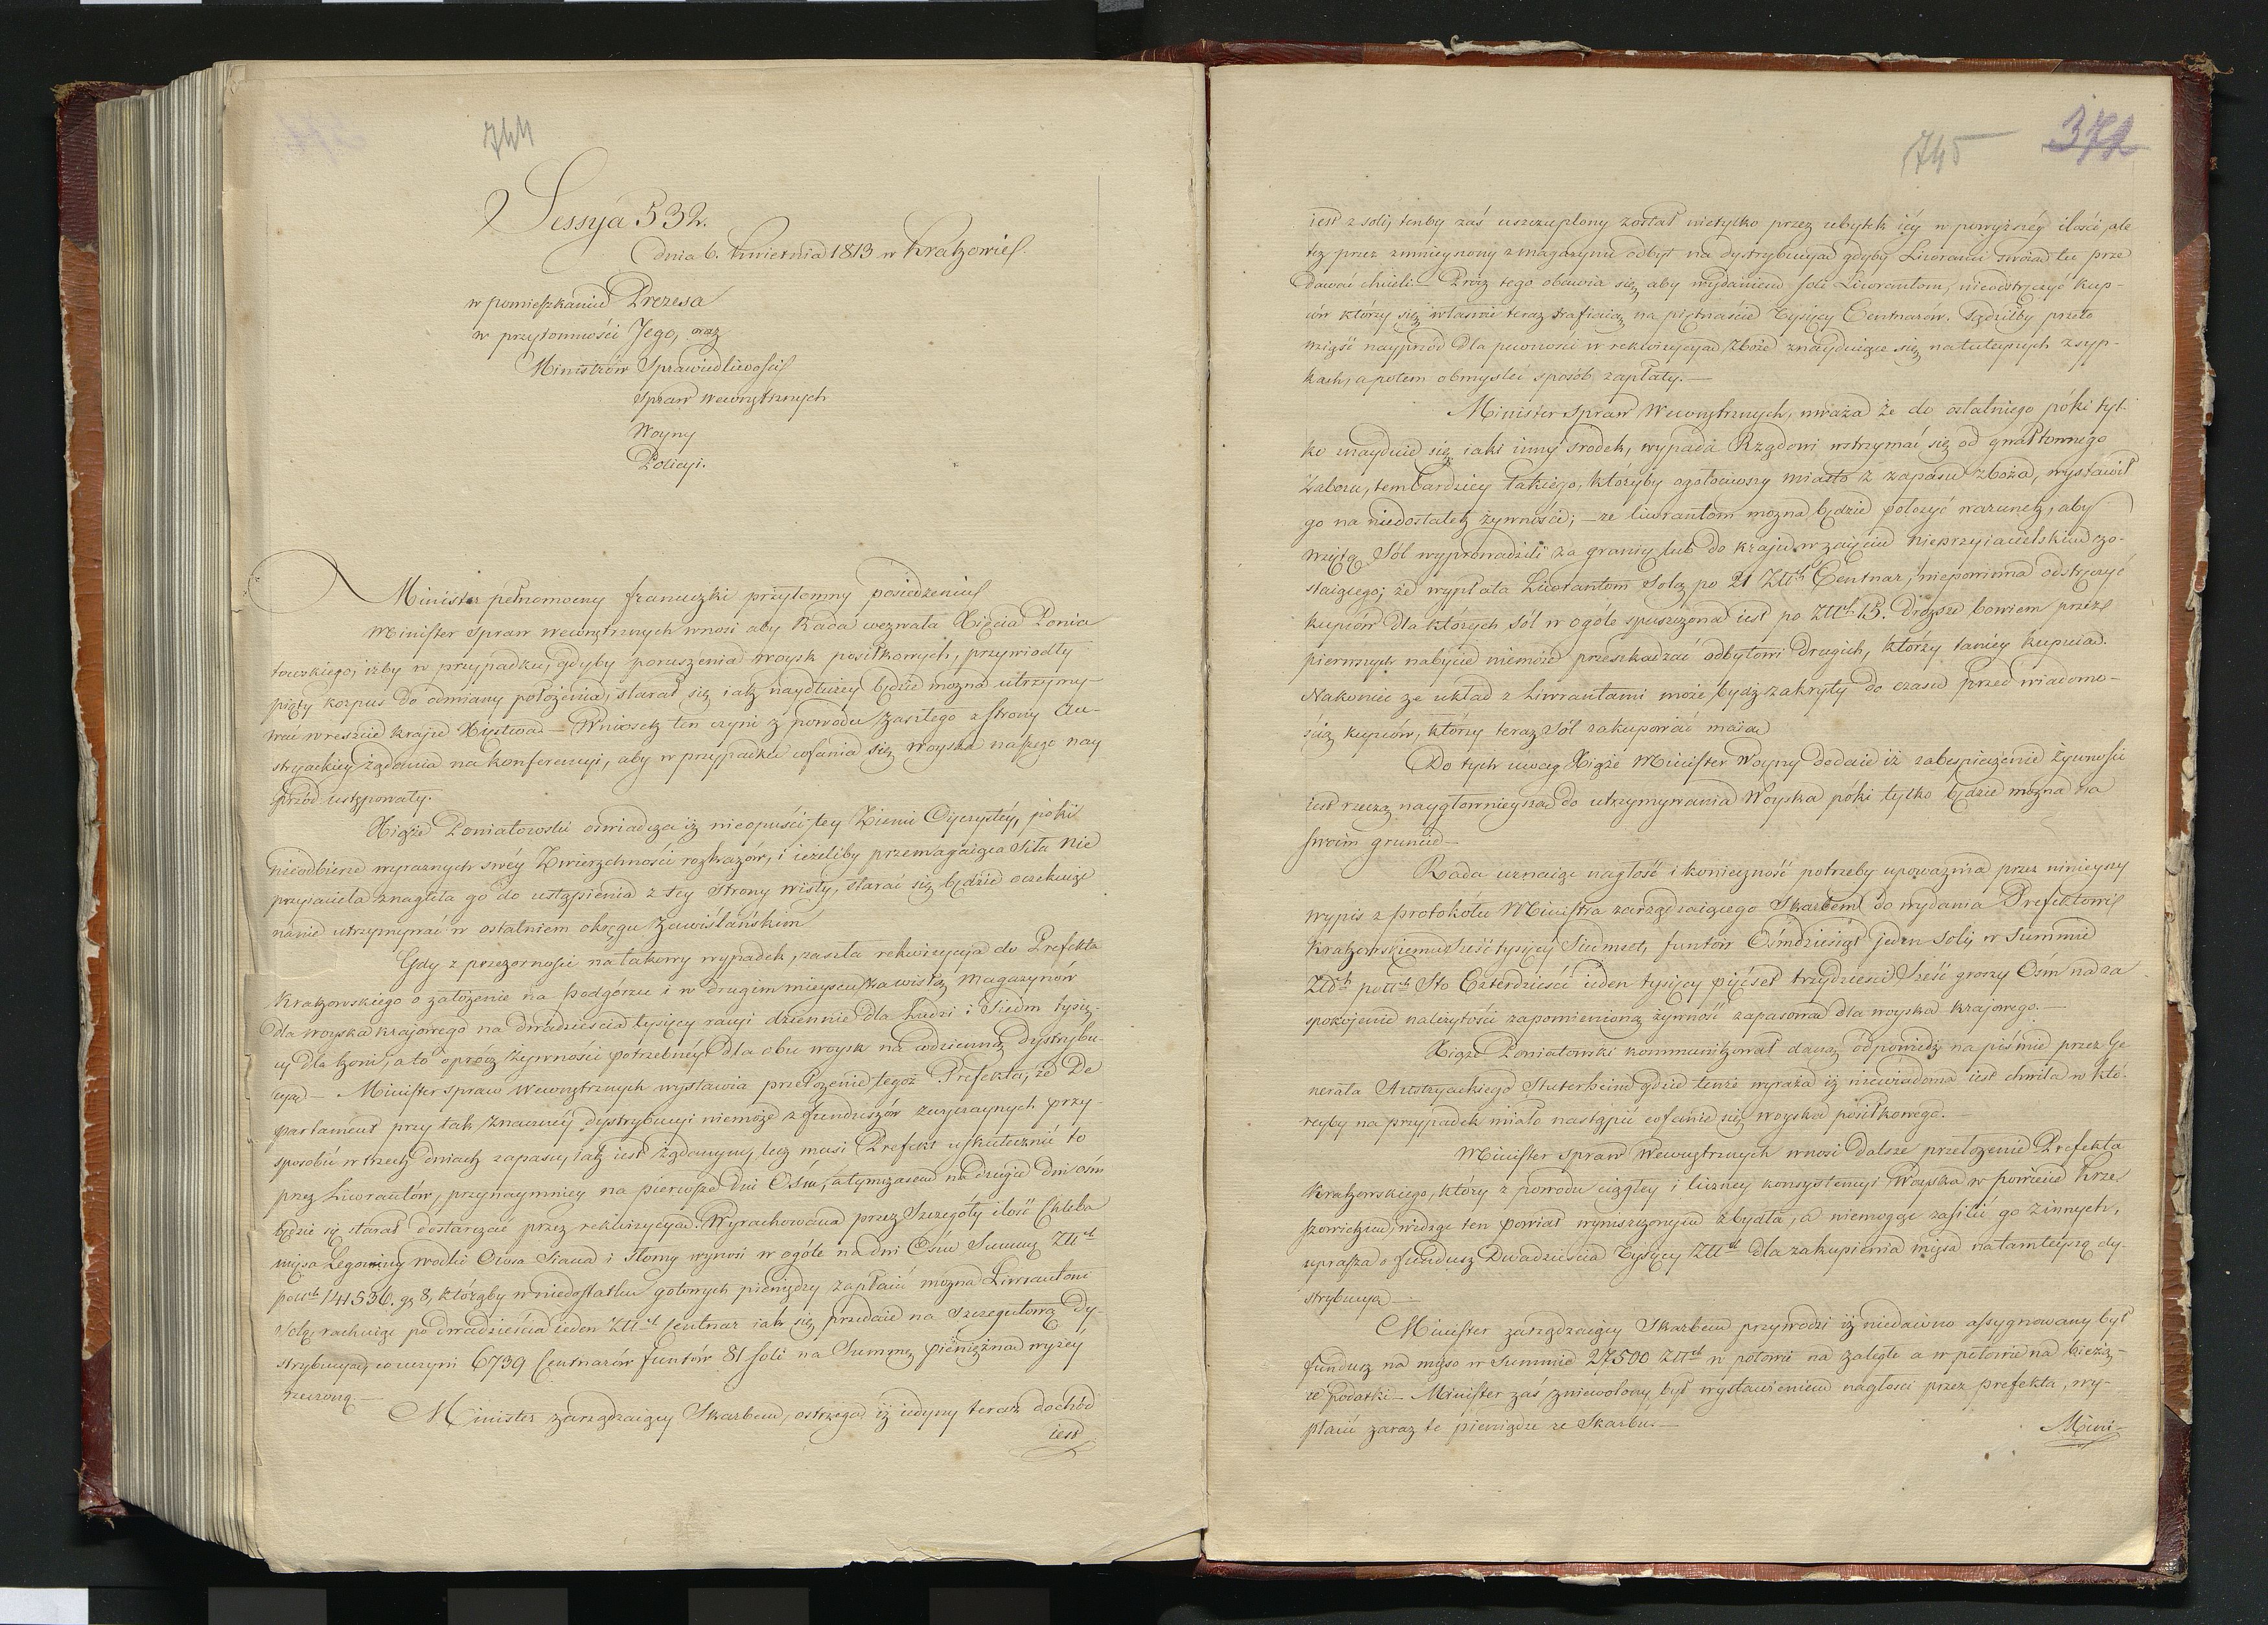 744
Sessya 532.
dnia 6. Kwietnia 1813 w Krakowie
w pomieszkaniu Prezesa
w przytomności Jego, oraz
Ministrów Sprawiedliwości
Spraw Wewnętrznych
Woyny
Policyi.
Minister pełnomocny francuzki przytomny posiedzeniu
Minister Spraw Wewnętrznych wnosi aby Rada wezwała Xięcia Ponia
towskiego, iżby w przypadku, gdyby poruszenia woysk posiłkowych, przywiodły
piąty korpus do odmiany położenia, starał się iak naydłużey będzie można utrzymy-
wać w reszcie kraju Xięstwa — Wniosek ten czyni z powodu zaszłego z strony Au-
stryackiey żądania na konferencyi, aby w przypadku cofania się, Woyska naszego nay
przód ustępowały.
Xiąże Poniatowski oświadcza iż nieopuści tey Ziemi Oyczystéy, póki
nieodbierze wyraznych swéy Zwierzchności rozkazów, i ieżeliby przemagaiąca siła nie
przyiaciela znagliła go do ustąpienia z tey strony wisły, starać się będzie oczekuiąc
na nie utrzymywać w ostatniem okręgu Zawiślańskim
Gdy z przezorności na takowy wypadek, zaszła rekwizycyia do Prefekta
Krakowskiego o założenie na Podgórzu i w drugim mieyscu za wisłą Magazynów
dla woyska kraiowego na dwadzieścia tysięcy racyi dziennie dla Ludzi i Siedm tysię-
cy dla koni, a to oprócz żywności potrzebnéy dla obu woysk na codzienną dystrybu-
cyą — Minister Spraw Wewnętrznych wystawia przełożenie tegoż Prefekta, że De
partament przy tak znaczney dystrybucyi niemoże z funduszów zwyczaynych przy-
sposobić w trzech dniach zapasu, iak iest żądanym, lecz musi Prefekt uskutecznić to
przez Liwrantów, przynaymniey na pierwsze dni Ośm, a tymczasem na drugie dni ośm
będzie się starał dostarczać przez rekwizycyą. Wyrachowana przez Szczegóły ilość Chleba
mięsa Legominy wodki Owsa Siana i Słomy wynosi w ogóle na dni Ośm Summę Złt
pols 141536. gr 8, którąby w niedostatku gotowych pieniędzy zapłacić można Liwrantom
Solą, rachuiąc po dwadzieścia ieden Złt Centnar iak się przedaie na Szczegułową Dy-
strybucyą, co uczyni 6739 Centnarów funtów 81 soli na Summę pieniężną wyżéy
rzeczoną —
Minister zarządzaiący Skarbem, ostrzega iż iedyny teraz dochód
iest
745
372
iest z soli, tenby zaś uszczuplony został nietylko przez ubytek iéy w powyższéy ilości, ale
też przez zmnieyszony z magazynu odbyt na dystrybucyą gdyby Liwranci swoią tu prze
dawać chcieli — Prócz tego obawia się, aby wydaniem soli Liwrantom, nieodstręczyć kup-
ców którzy się właśnie teraz trafiaią na piętnaście Tysięcy Centnarów. Sądziłby przeto
wziąść nayprzód dla pewności w rekwizycyą Zboże znayduiące się na tuteyszych Zsyp-
kach, a potem obmyslić sposób zapłaty.—
Minister Spraw Wewnętrznych, uważa że do ostatniego póki tyl-
ko znaydzie się iaki inny srodek, wypada Rządowi wstrzymać się od gwałtownego
Zaboru, tembardziey takiego, któryby ogołociwszy miasto z zapasu zboża, wystawił
go na niedostatek żywności; — że liwrantom można będzie położyć warunek, aby
wziętą Sól wyprowadzili za granicę lub do kraju w zaięciu nieprzyiacielskim zo-
staiącego; że wypłata Liwrantom Solą po 21 Złt Centnar, niepowinna odstręczyć
kupców dla których Sól w ogóle spuszczona iest po Złt 15. Droższe bowiem przez
pierwszych nabycie niemoże przeszkadzać odbytowi drugich, którzy taniéy kupuią.
Nakoniec ze układ z Liwrantami może bydź zakryty do czasu przed wiadomo-
ścią kupców, którzy teraz Sól zakupować maią
Do tych uwag Xiąże Minister Woyny dodaie iż zabespieczenie Zywności
iest rzeczą naygłownieyszą do utrzymywania Woyska póki tylko będzie można na
swoim gruncie —
Rada uznaiąc nagłość i konieczność potrzeby upoważnia przez ninieyszy
wypis z protokołu Ministra zarządzaiącego Skarbem do wydania Prefektowi
Krakowskiemu Sześć tysięcy Siedmset, funtów Ośmdziesiąt jeden Soli w Summie
Złt pols Sto Czterdzieści ieden tysięcy pięćset trzydzieści Sześć groszy Ośm na za
spokoienie należytości za pomienioną żywność zapasową dla woyska kraiowego.—
Xiąże Poniatowski kommunikował daną odpowiedź na piśmie przez Ge
nerała Austryackiego Stuterheim gdzie tenże wyraża iż niewiadoma iest chwila w któ-
reyby na przypadek miało nastąpić cofanie się woyska posiłkowego.—
Minister Spraw Wewnętrznych wnosi dalsze przełożenie Prefekta
Krakowskiego, który z powodu ciągłey i liczney konsystencyi Woyska w powiecie Krze
szowickim, widząc ten powiat wyniszczonym z bydła, a niemogąc zasilić go z innych,
uprasza o fundusz Dwadzieścia Tysięcy Złt dla zakupienia mięsa na tamteyszą dy-
strybucyą —
Minister zarządzaiący Skarbem przywodzi iż niedawno assygnowany był
fundusz na mięso w Summie 27500 Złt w połowie na zaległe a w połowie na bieżą-
ce podatki — Minister zaś zniewolony był wystawieniem nagłości przez prefekta, wy-
płacić zaraz te pieniądze ze Skarbu.—
Mini-